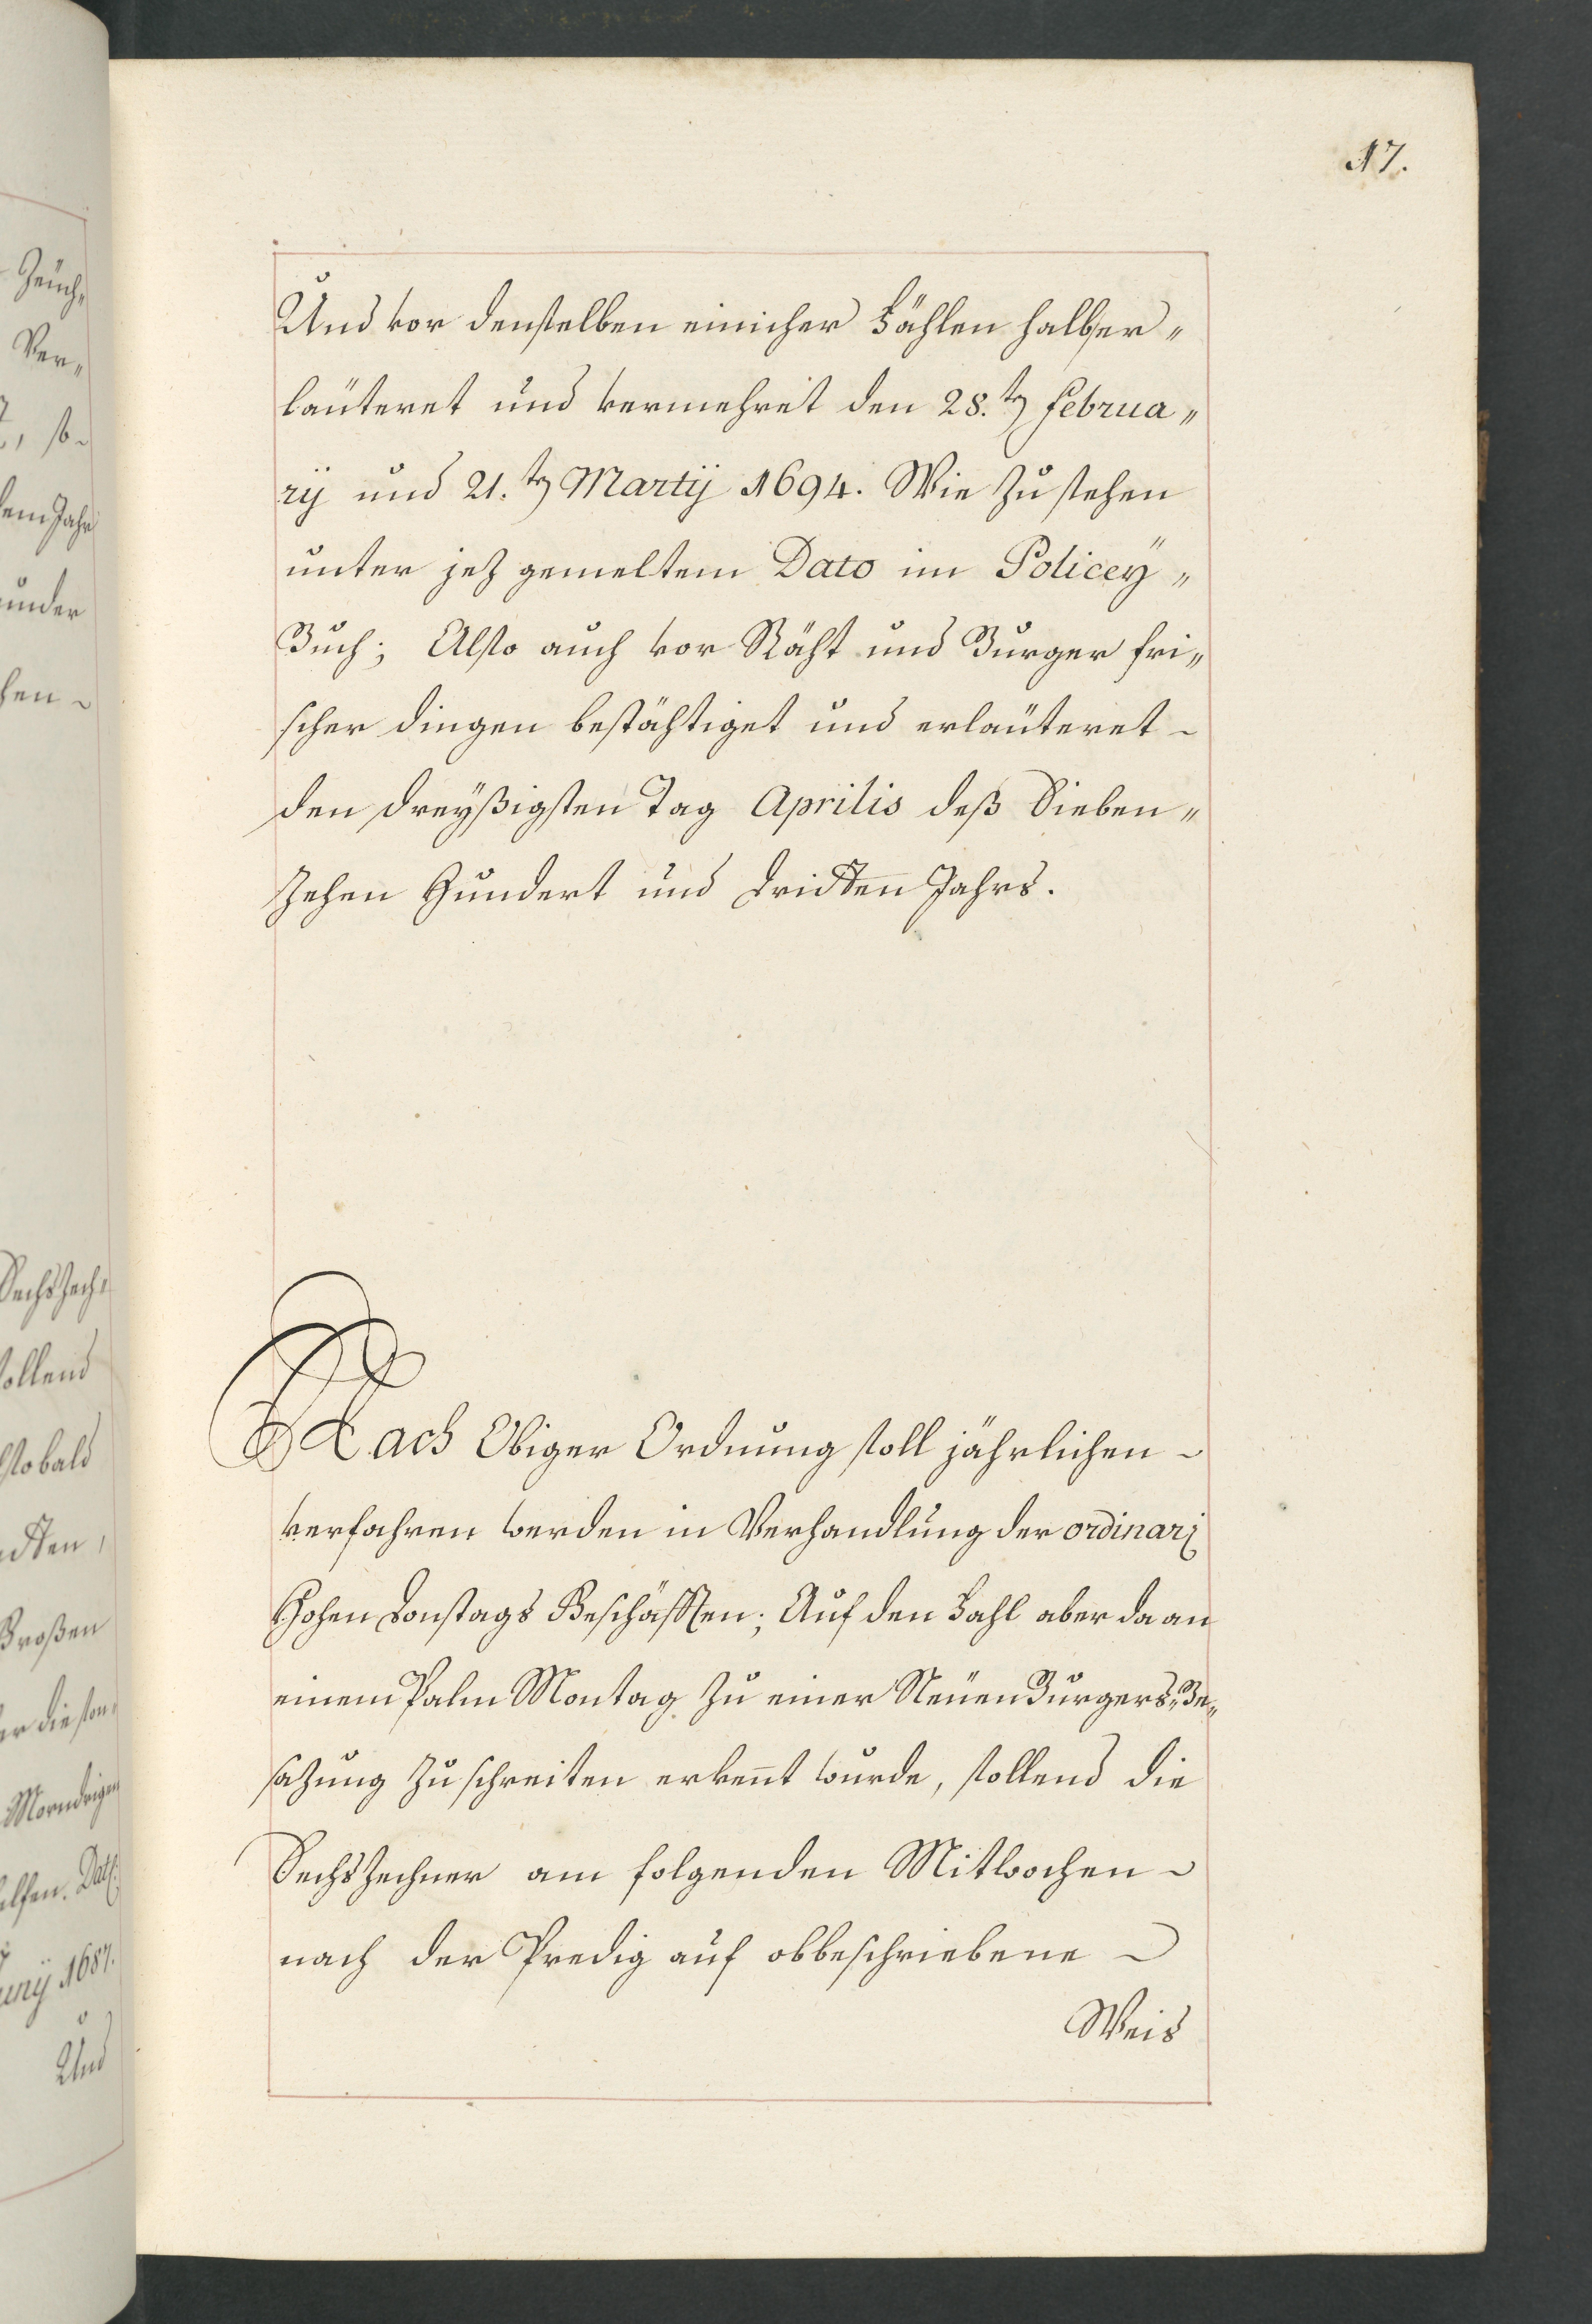 17.
Und vor denselben einicher Fählen halb er„
läuteret und vermehret den 28.ten Februa„
rij und 21.ten Martij 1694. Wie zu stehen
unter jez gemeltem Dato im Policeÿ„
Buch; Also auch vor Räht und Burger fri„
scher dingen bestähtiget und erläuteret
den dreÿßigsten Tag Aprilis deß Sieben„
zehen Hundert und dridten Jahrs.
Nach Obiger Ordnung soll jährlichen
verfahren werden in Verhandlung der ordinari
Hohen Donstags Geschäfften; Auf den Fahl aber da an
einem Palm Montag zu einer Neüen Burgers„Be„
sazung zu schreiten erkent wurde, sollend die
Sechszechner am folgenden Mitwochen
nach der Predig auf obbeschriebene
Weis
Ver„
under
sollend
Großen
1687.
Und